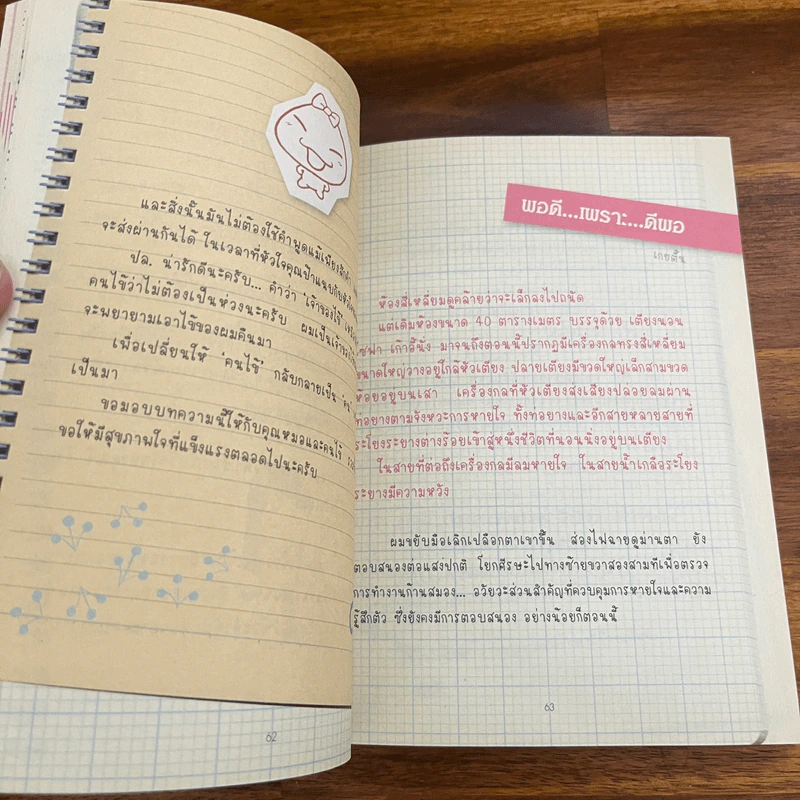 และสิ่งนั้นมันไม่ต้องใช้คำพูดแม้เพียงสักคำ
จะส่งผ่านกันได้ ในเวลาที่หัวใจคุณป้าแนบกับหัวใจ
ปล. น่ารักดีนะครับ... คำว่า 'เจ้าของไข้'
คนไข้ว่าไม่ต้องเป็นห่วงนะครับ ผมเป็น
จะพยายามเอาไข้ของผมคืนมา
เพื่อเปลี่ยนให้ 'คนไข้' กลับกลายเป็น 'คน'
เป็นมา
ขอมอบบทความนี้ให้กับคุณหมอและคนไข้
ขอให้มีสุขภาพใจที่แข็งแรงตลอดไปนะครับ
62
พอดี...เพราะ...ดีพอ
เกยตื้น
ห้องสี่เหลี่ยมดูคล้ายว่าจะเล็กลงไปถนัด
แต่เดิมห้องขนาด 40 ตารางเมตร บรรจุด้วย เตียงนอน
โซฟา เก้าอี้นั่ง มาจนถึงตอนนี้ปรากฏมีเครื่องกลทรงสี่เหลี่ยม
ขนาดใหญ่วางอยู่ใกล้หัวเตียง ปลายเตียงมีขวดใหญ่เล็กสามขวด
ห้อยอยู่บนเสา เครื่องกลที่หัวเตียงส่งเสียงปลอยลมผ่าน
ท่อยางตามจังหวะการหายใจ ทั้งท่อยางและอีกสายหลายสายที่
ระโยงระยางต่างร้อยเข้าสู่หนึ่งชีวิตที่นอนนิ่งอยู่บนเตียง
ในสายที่ต่อถึงเครื่องกลมีลมหายใจ ในสายน้ำเกลือระโยง
ระยางมีความหวัง
ผมขยับมือเลิกเปลือกตาเขาขึ้น ส่องไฟฉายดูม่านตา ยัง
ตอบสนองต่อแสงปกติ โยกศีรษะไปทางซ้ายขวาสองสามทีเพื่อตรวจ
การทำงานก้านสมอง... อวัยวะส่วนสำคัญที่ควบคุมการหายใจและความ
รู้สึกตัว ซึ่งยังคงมีการตอบสนอง อย่างน้อยก็ตอนนี้
63